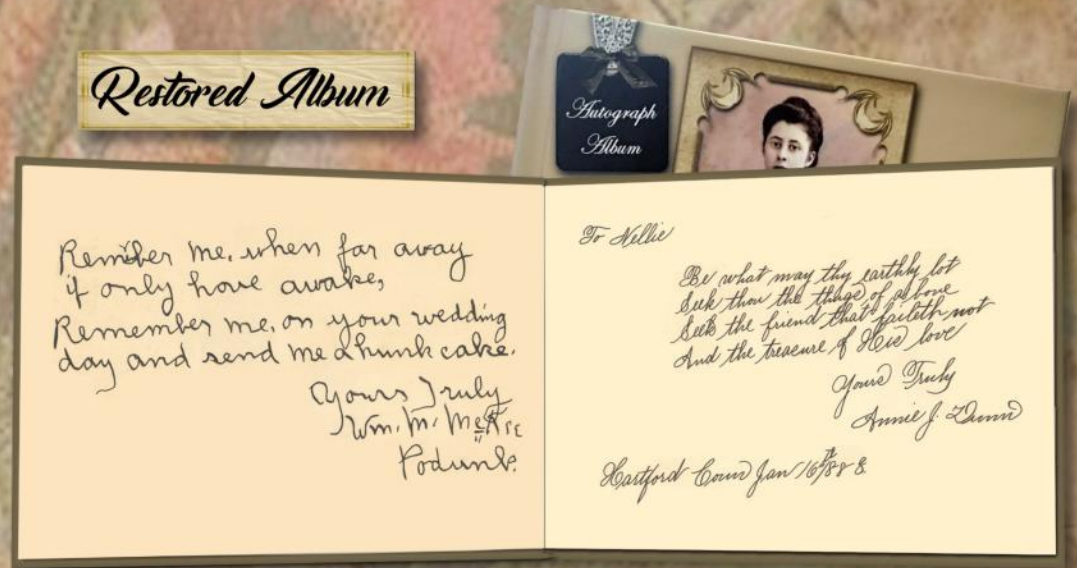 Restored Album
Autograph
Album
Remiber me, when far away
if only have awake,
Remember me, on your wedding
day and send me a hunk cake.
Yours Truly
Wm. M. McKie
Podunk.
To Nellie
Be what may thy earthly lot
Seek thou the things of above
Seek the friend that faileth not
And the treasure of His love
Yours Truly
Annie J. Dunn
Hartford Conn Jan 16th 1888